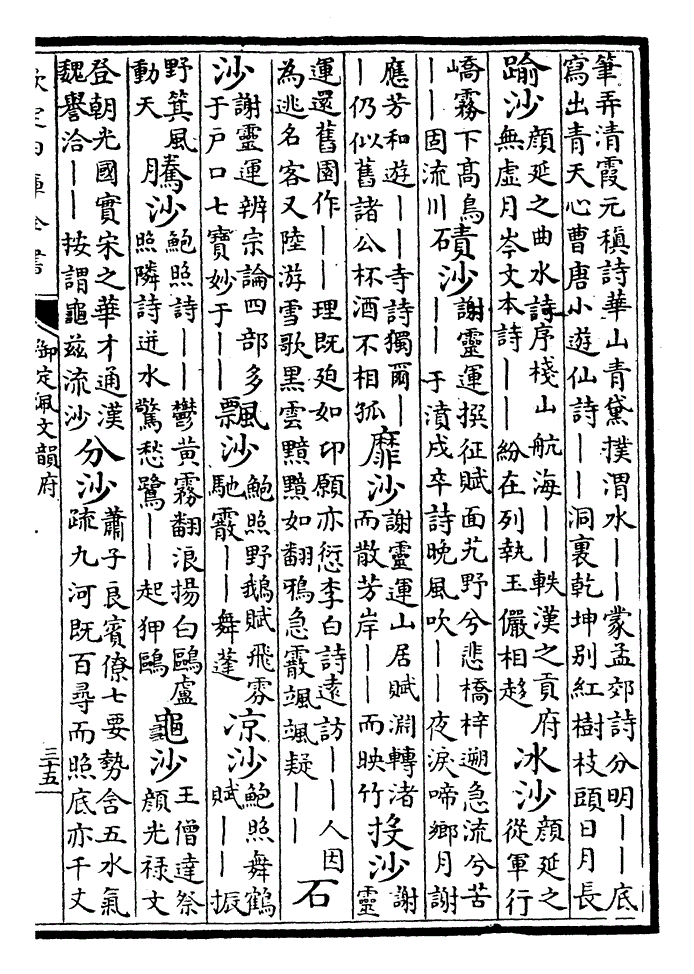 筆弄清霞元稹詩華山青黛撲渭水——蒙孟郊詩分明——底
寫出青天心曹唐小遊仙詩——洞裏乾坤別紅樹枝頭日月長
踰沙
顔延之曲水詩序棧山航海——軼漢之貢府
無虛月岑文本詩——紛在列執玉儼相趨
冰沙
顔延之
從軍行
嶠霧下髙鳥
——固流川
磧沙
謝靈運撰征賦面艽野兮悲橋梓遡急流兮苦
——于濆戍卒詩晚風吹——夜淚啼鄉月謝
應芳和遊——寺詩獨爾—
—仍似舊諸公杯酒不相孤
靡沙
謝靈運山居賦淵轉渚
而散芳岸——而映竹
投沙
謝
靈
運還舊園作——理既廹如邛願亦愆李白詩遠訪——人因
為逃名客又陸游雪歌黒雲黯黯如翻鴉急霰颯颯疑——
石
沙
謝靈運辨宗論四部多
于户口七寳妙于——
飄沙
鮑照野鵝賦飛雰
馳霰——舞蓬
凉沙
鮑照舞鶴
賦——振
野箕風
動天
騰沙
鮑照詩——鬱黄霧翻浪揚白鷗盧
照隣詩迸水驚愁鷺——起狎鷗
龜沙
王僧達祭
顔光禄文
登朝光國實宋之華才通漢
魏譽洽——按謂龜茲流沙
分沙
蕭子良賓僚七要勢含五水氣
疏九河既百尋而照底亦千丈
欽定四庫全書
御定佩文韻府
三十五